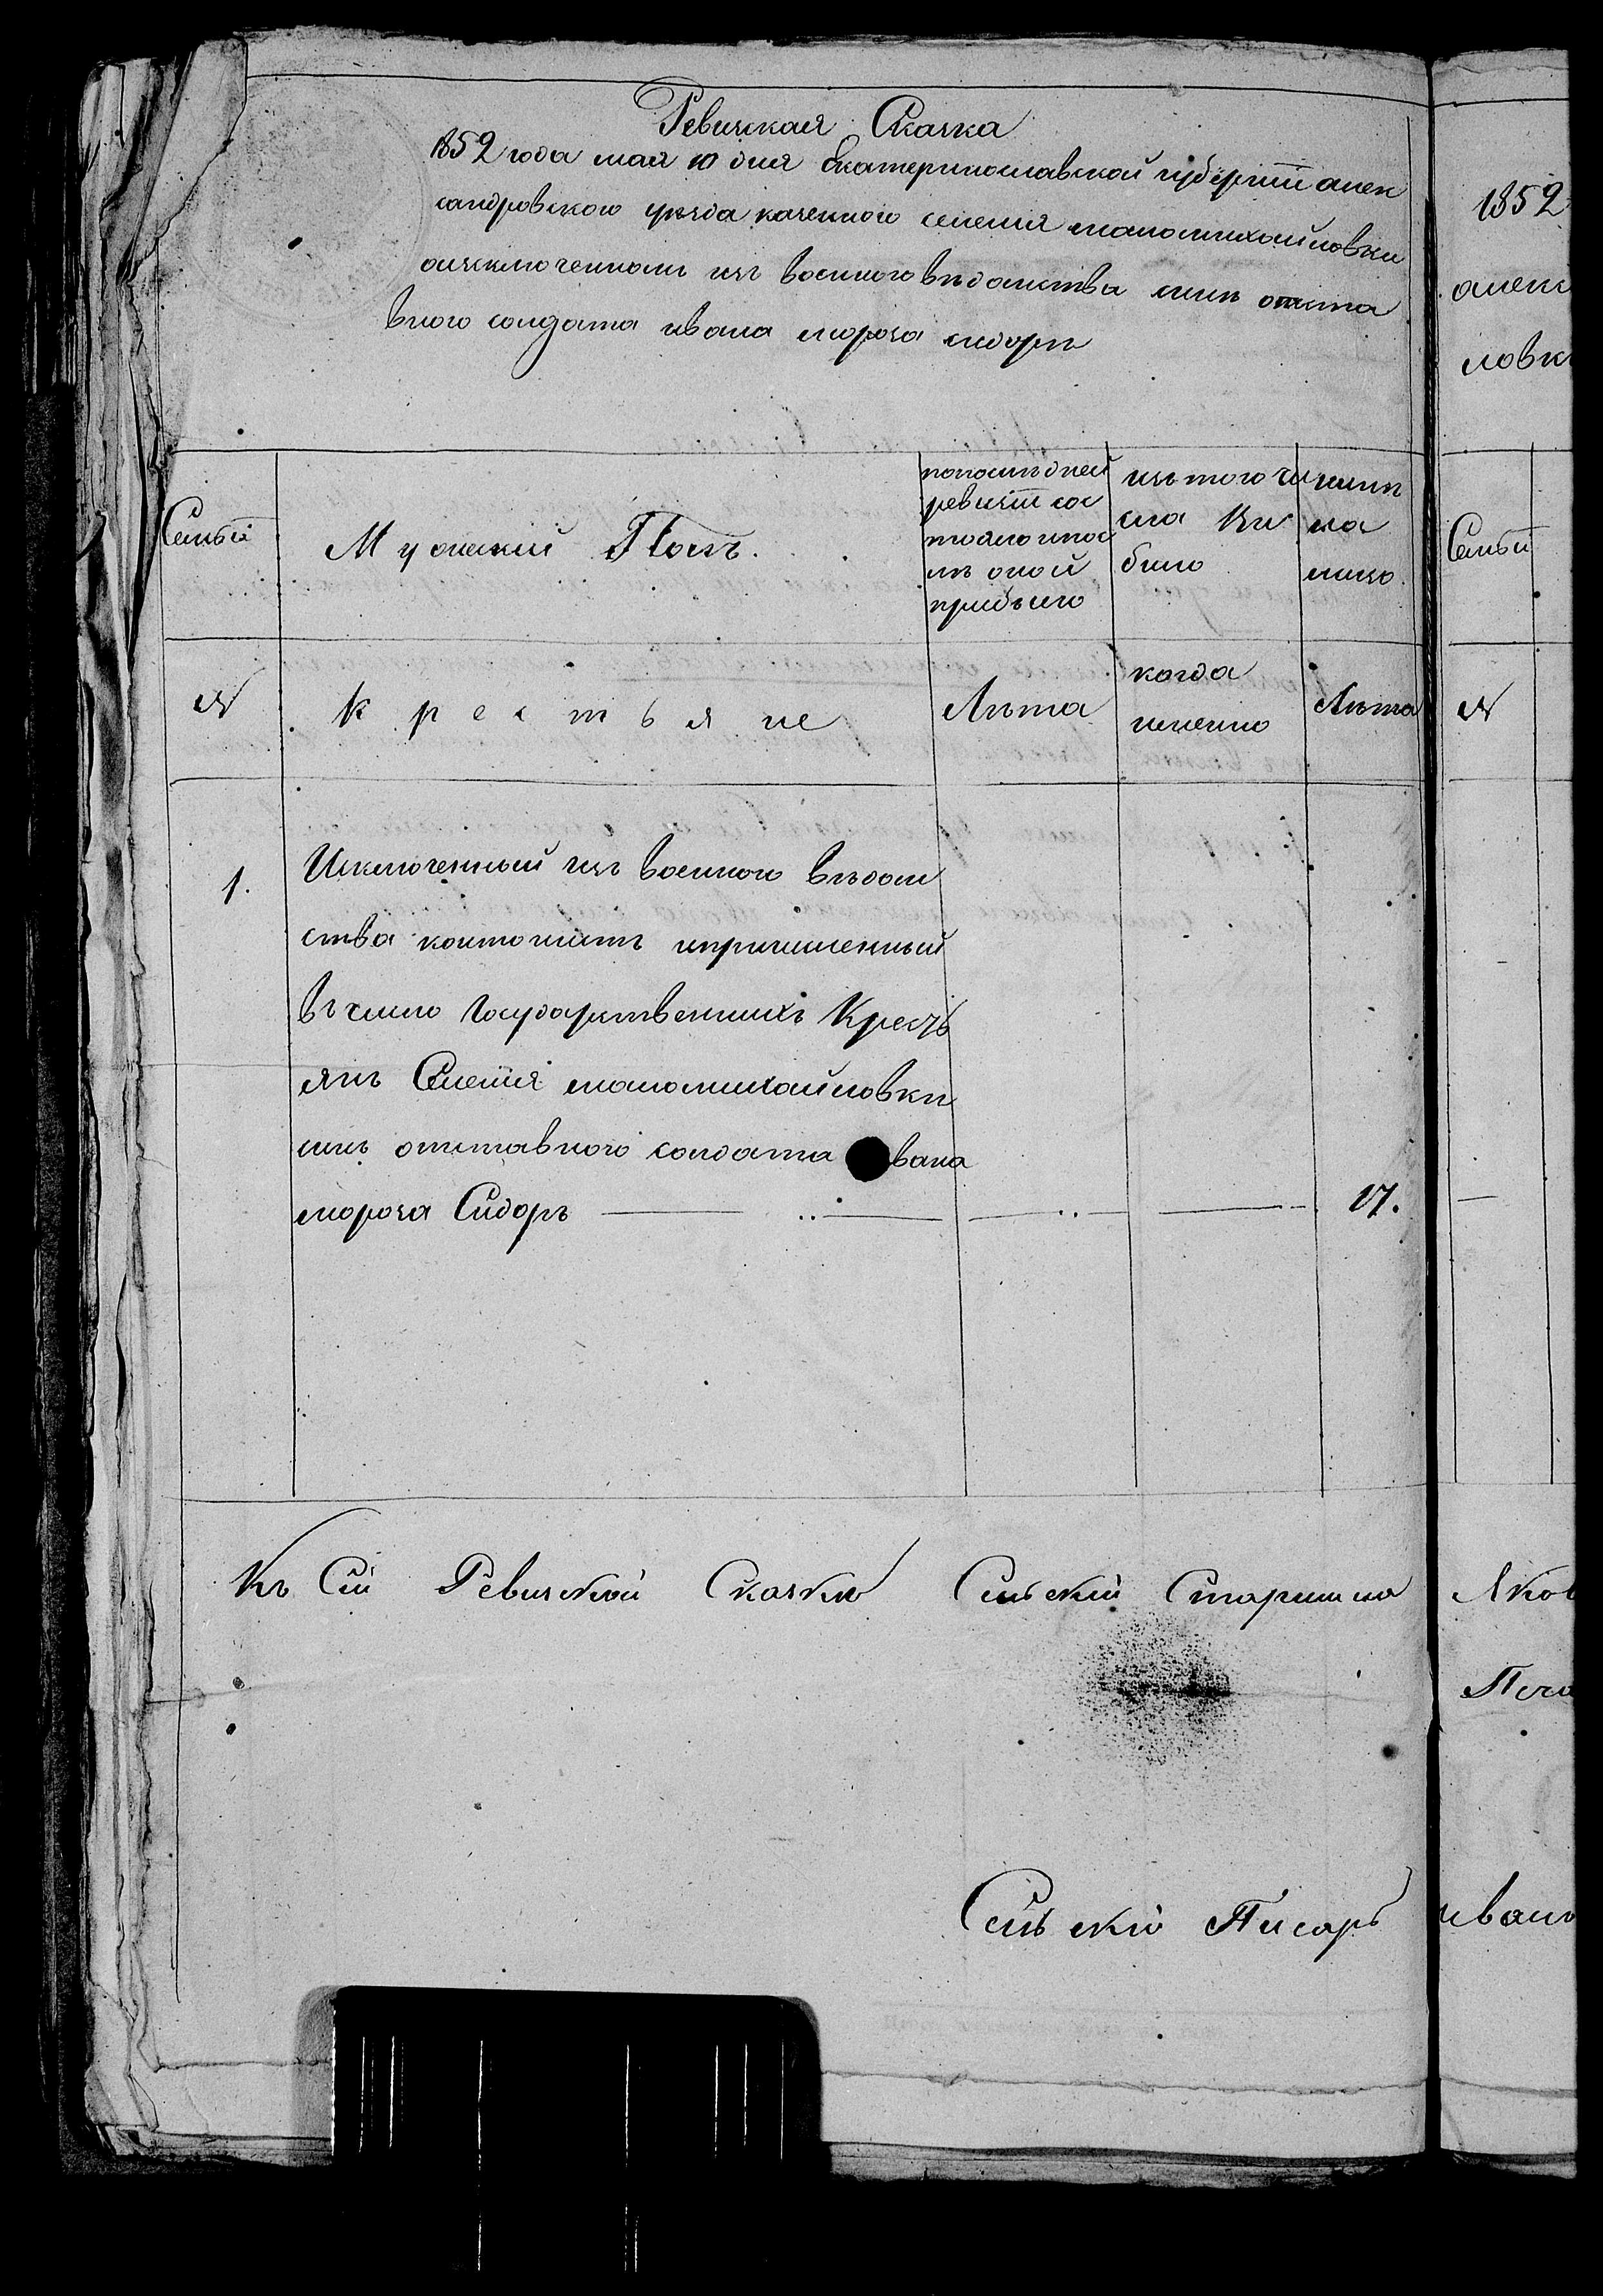 Ревизская Сказка
1852 года мая 10 дня Екатеринославской губернiи алек
сандровского уезда казенного селения маломихайловки
оизключенномъ изъ военного вѣдомства сынѣ отста
вного солдата ивана мороза сидорѣ
Семьи
Мужеский Полъ.
попослѣдней
ревизiи сос
тояло ипос
лѣ оной
прибыло
изъ того чи
сла выбыло
нынѣ
на
лицо.
№
крестьяне
Лѣта
когда
именно
Лѣта
1.
Изключенный изъ военного вѣдом
ства контонистъ ипричисленный
въ число Государственныхъ Кресть
янъ Селенiя маломихайловки
сынъ отставного солдата вана
мороза Сидоръ
17.
Къ Сiй Ревизской Сказки Сельскiй Старшина
Сельскiй Писарь
1852
алекс
ловки
Семьи
№
Яков
Печа
иванъ